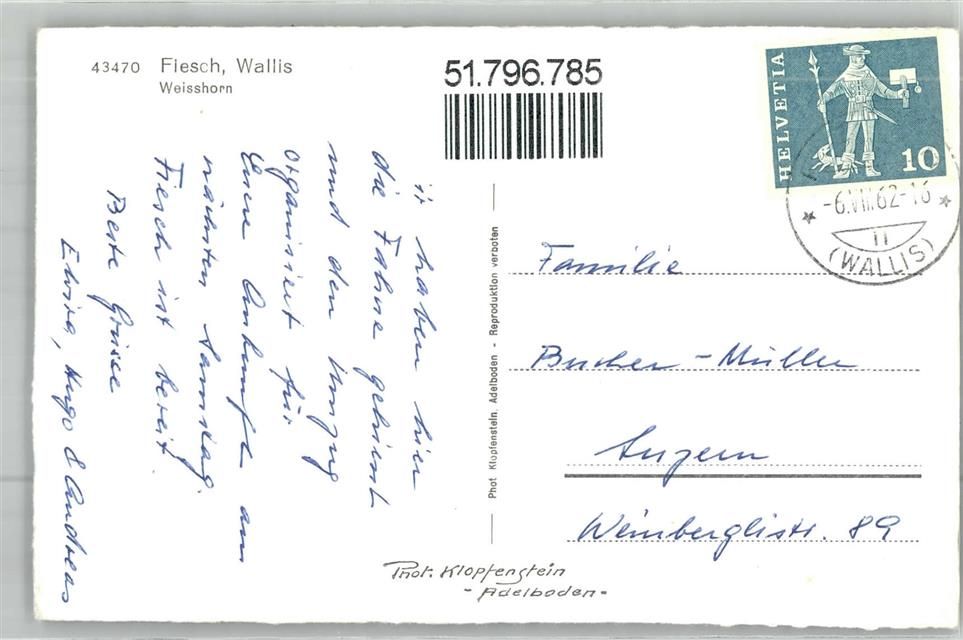 43470 Fiesch, Wallis
Weisshorn
51.796.785
HELVETIA
10
-6.VII.62-16
(WALLIS)
ir haben hier
die Fahne gehisst
und den Umzug
organisiert für
Eure Ankunft am
nächsten Samstag.
Fiesch ist bereit.
Beste Grüsse
Elvira, Hugo & Andreas
Phot Klopfenstein, Adelboden - Reproduktion verboten
Familie
Bucher-Müller
Luzern
Weinberglistr. 89
Phot. Klopfenstein
- Adelboden -